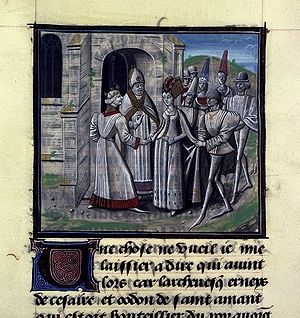 Une chose ne vueil ie mie
laissier a dire qui auint
lors car larcheuesq
de cesaire et oodon de saint amant
qui estoit bouteillier du roy